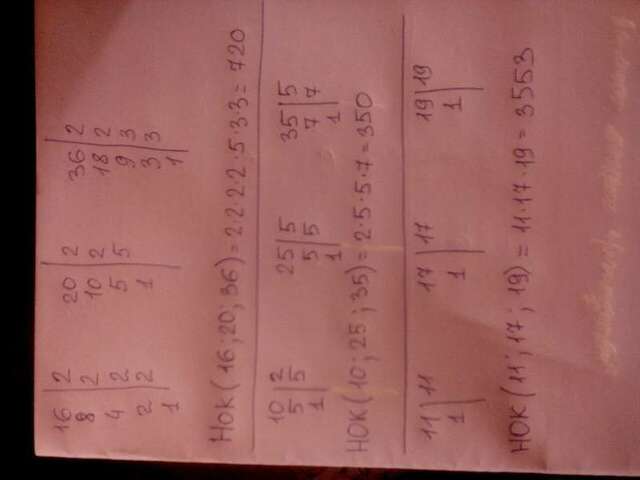 16 | 2   20 | 2   36 | 2
8 | 2   10 | 2   18 | 2
4 | 2   5 | 5   9 | 3
2 | 2   1   3 | 3
1   1
НОК (16; 20; 36) = 2·2·2·2·5·3·3 = 720
10 | 2   25 | 5   35 | 5
5 | 5   5 | 5   7 | 7
1   1   1
НОК (10; 25; 35) = 2·5·5·7 = 350
11 | 11   17 | 17   19 | 19
1   1   1
НОК (11; 17; 19) = 11·17·19 = 3553